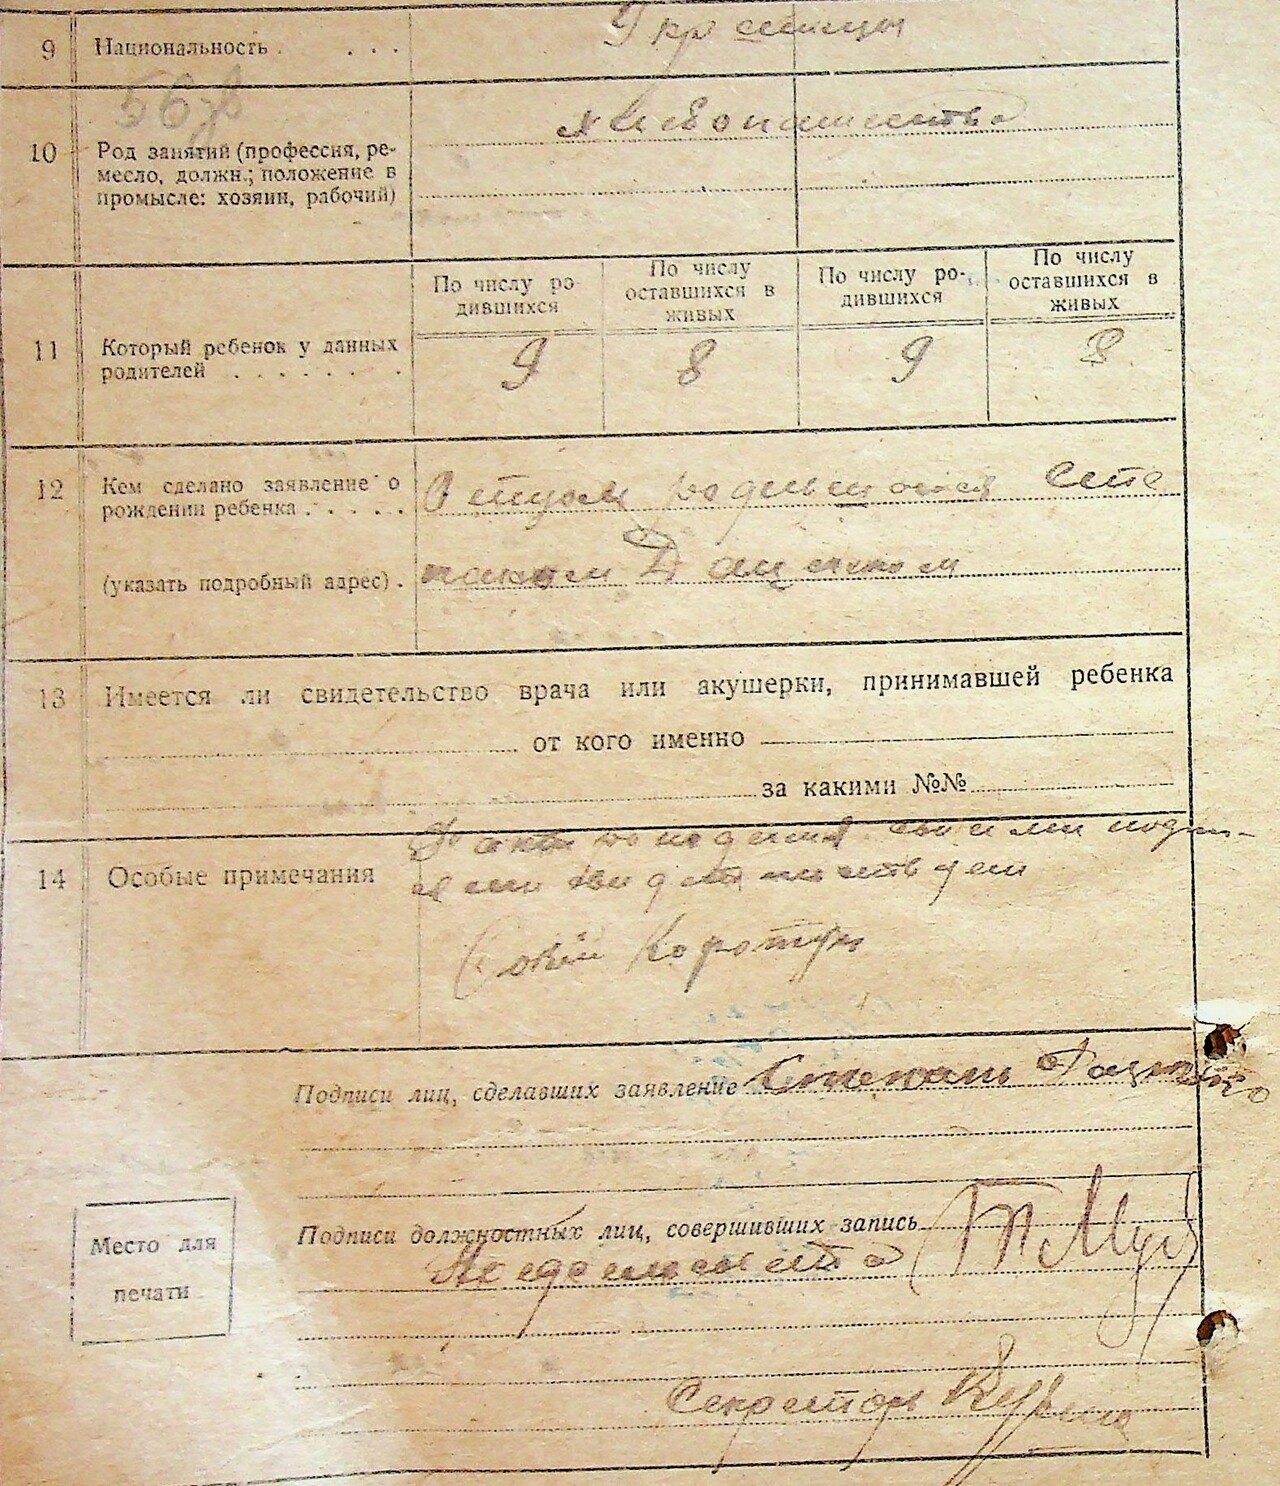 9 Национальность . . . . Украинцы
56
10 Род занятий (профессия, ре-
месло, должн.; положение в
промысле: хозяин, рабочий)
Хлебопашество
По числу ро-
дившихся
По числу
оставшихся в
живых
По числу ро-
дившихся
По числу
оставшихся в
живых
11 Который ребенок у данных
родителей . . . . . . .
9 8 9 8
12 Кем сделано заявление о
рождении ребенка . . . . .
Отцом Сте
(указать подробный адрес) .
паном Даценком
13 Имеется ли свидетельство врача или акушерки, принимавшей ребенка
от кого именно
за какими №№
14 Особые примечания
своими подпи-
Коротун
Подписи лиц, сделавших заявление Степан Даценко
Подписи должностных лиц, совершивших запись
Место для
печати
Секретарь